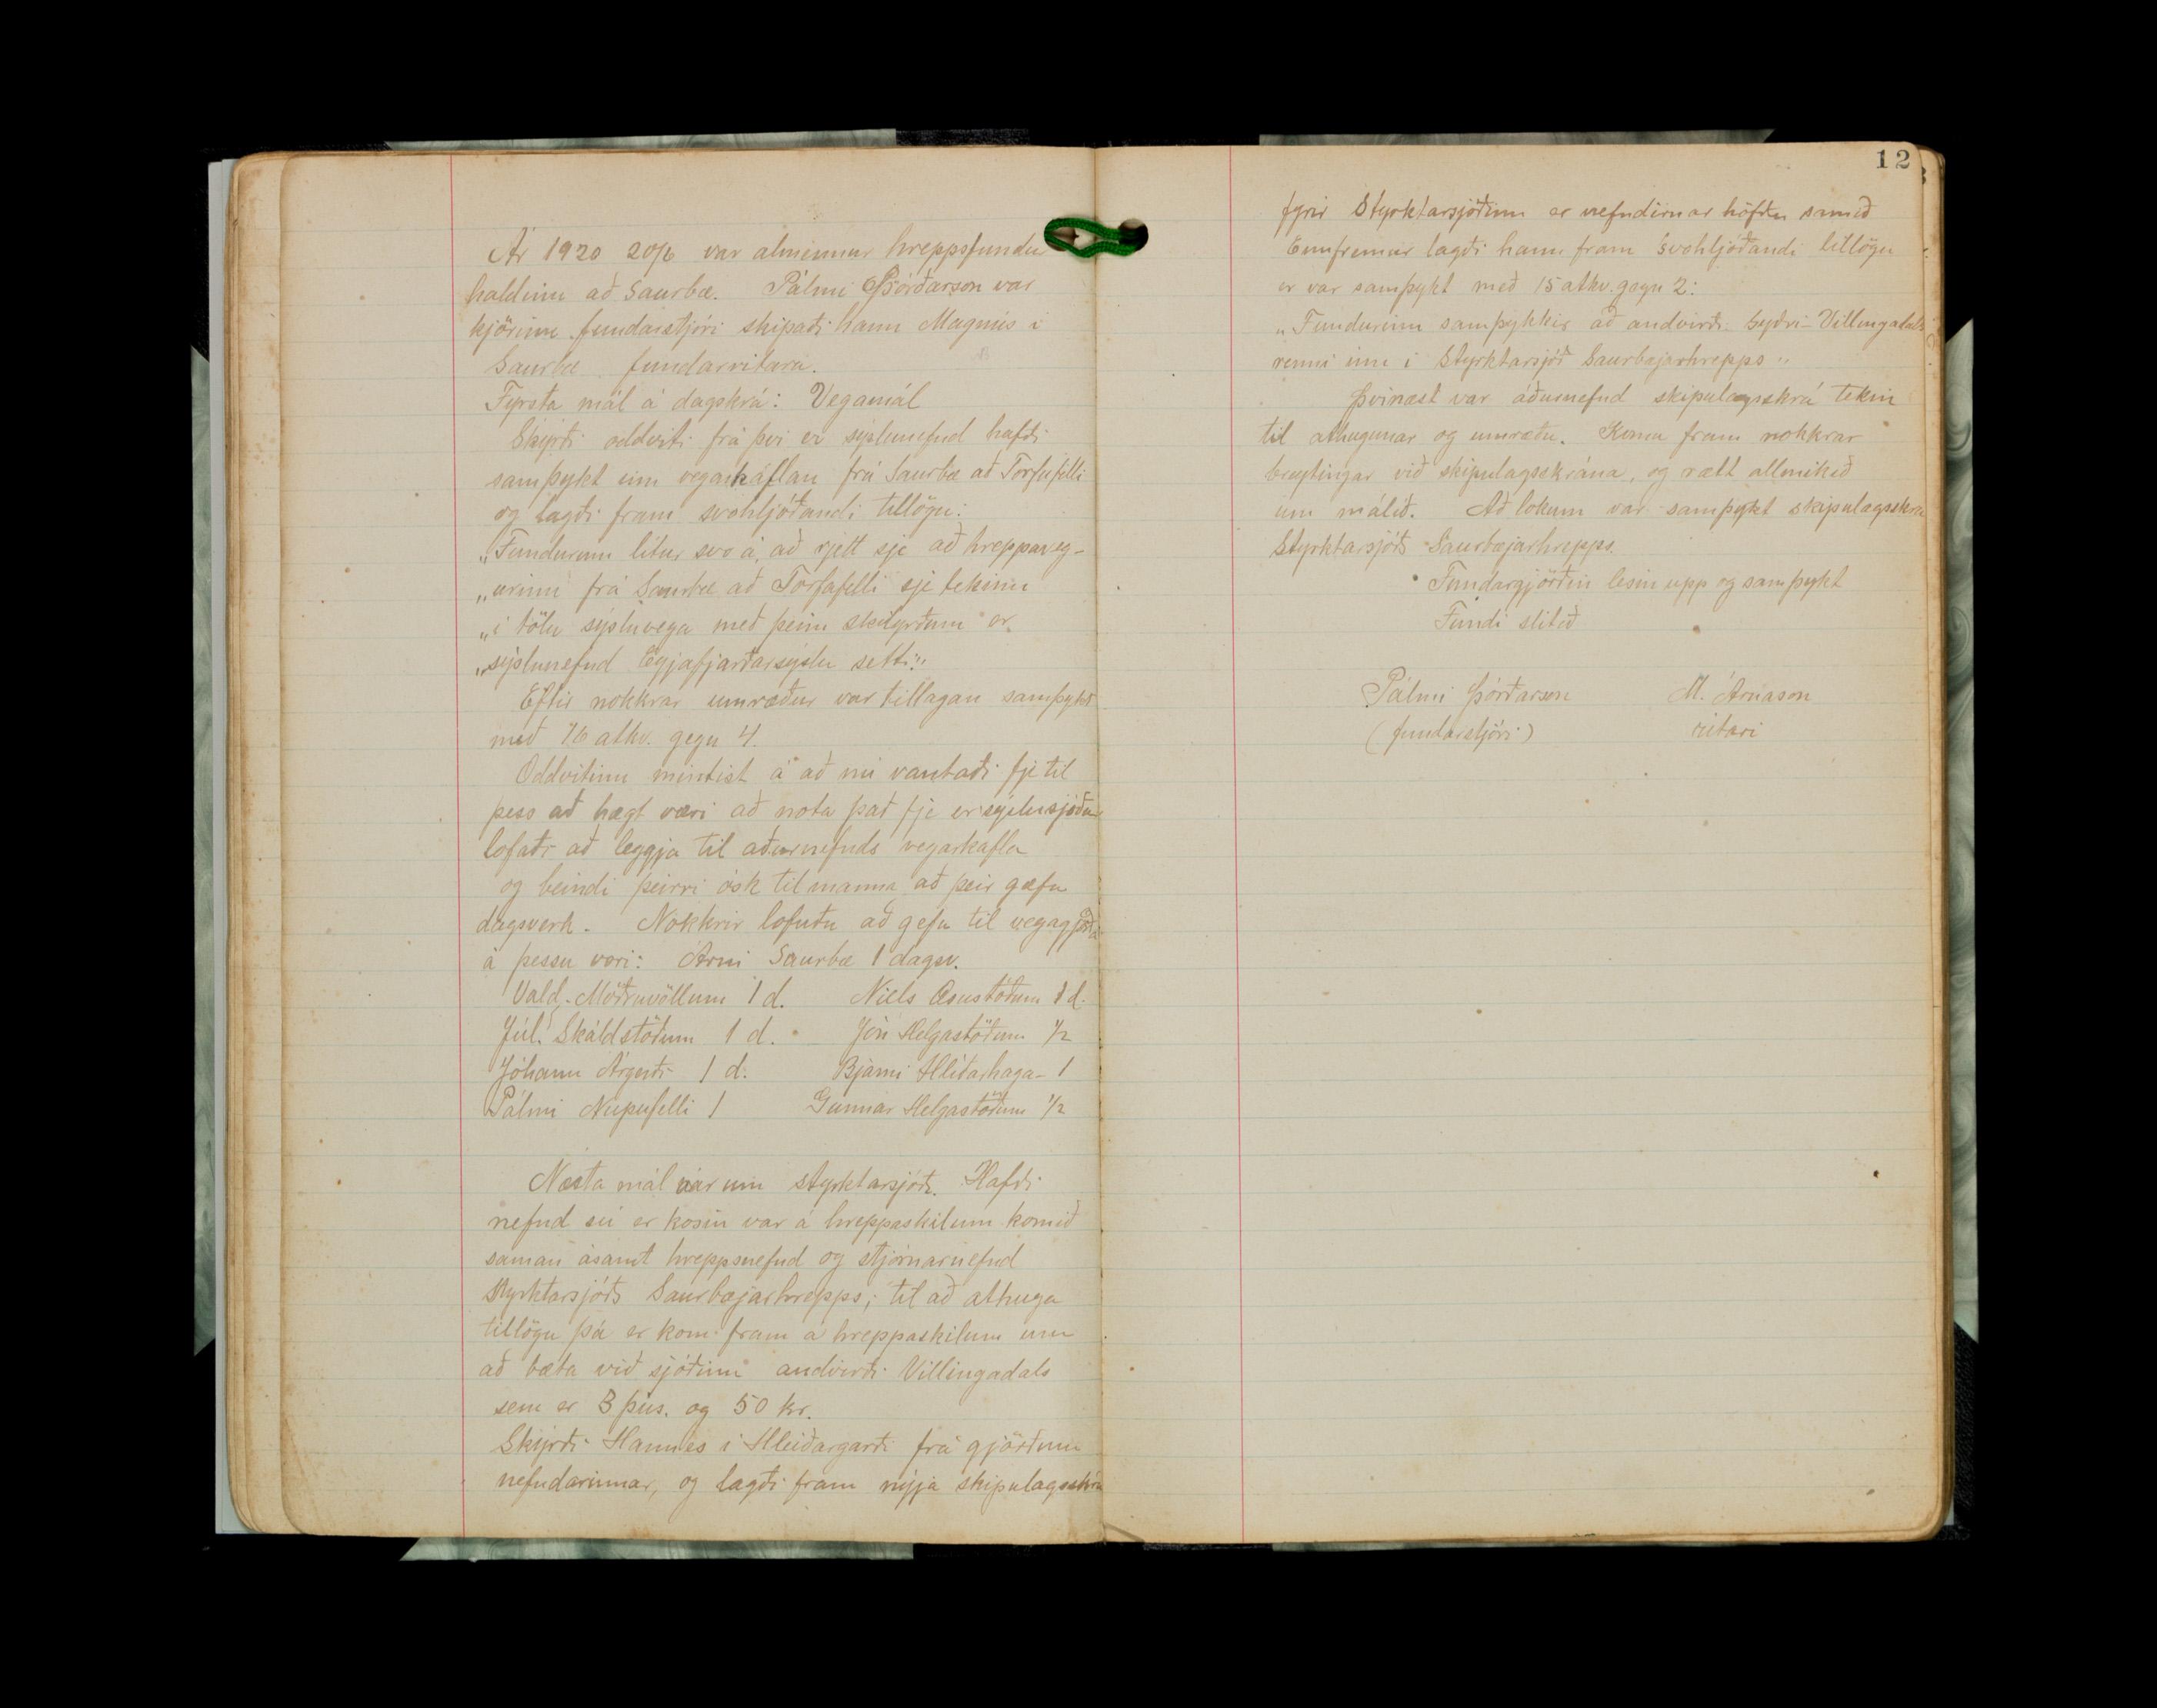 Ár 1920 20/6 var almennur hreppsfundur
haldinn að Saurbæ. Pálmi Þórðarson var
kjörinn fundarstjóri skipaði hann Magnús í
Saurbæ fundarritara.
Fyrsta mál á dagskrá: Vegamál
Skýrði oddviti frá því er sýslunefnd hafði
samþykt um vegarkaflan frá Saurbæ að Torfufelli
og lagði fram svohljóðandi tillögu:
„Fundurinn lítur svo á, að rjett sje að hreppaveg-
„urinn frá Saurbæ að Torfufelli sje tekinn
„í tölu sýsluvega með þeim skilyrðum er
„sýslunefnd Eyjafjarðarsýslu setti."
Eftir nokkrar umræður var tillagan samþykt
með 16 atkv. gegn 4.
Oddvitinn mintist á að nú vantaði fje til
þess að hægt væri að nota það fje er sýslusjóður
lofaði að leggja til aðurnefnds vegarkafla
og beindi þeirri ósk til manna að þeir gæfu
dagsverk. Nokkrir lofuðu að gefa til vegagjörða
á þessu vori: Árni Saurbæ 1 dagsv.
Vald. Möðruvöllum 1 d. Niels Æsustöðum 1 d.
Júl. Skáldstöðum 1 d. Jón Helgastöðum 1/2
Jóhann Árgerði 1 d. Bjarni Hlíðarhaga 1
Pálmi Núpufelli 1 Gunnar Helgastöðum 1/2
Næsta mál var um styrktarsjóð. Hafði
nefnd sú er kosin var á hreppaskilum komið
saman ásamt hreppsnefnd og stjórnarnefnd
Styrktarsjóðs Saurbæjarhrepps; til að athuga
tillögu þá er kom fram á hreppaskilum um
að bæta við sjóðinn andvirði Villingadals
sem er 3 þús. og 50 kr.
Skýrði Hannes í Hleiðargarði frá gjörðum
nefndarinnar, og lagði fram nýja skipulagsskrá
12
fyrir Styrktarsjóðinn er nefndirnar höfðu samið
Ennfremur lagði hann fram svohljóðandi tillögu
er var samþykt með 15 atkv. gegn 2:
„Fundurinn samþykkir að andvirði Syðri-Villingadals
renni inn í Styrktarsjóð Saurbæjarhrepps"
Þvínæst var áðurnefnd skipulagsskrá tekin
til athugunar og umræðu. Komu fram nokkrar
breytingar við skipulagsskrána, og rætt allmikið
um málið. Að lokum var samþykt skipulagsskrá
Styrktarsjóðs Saurbæjarhrepps.
Fundargjörðin lesin upp og samþykt
Fundi slitið
Pálmi Þórðarson M. Árnason
(fundarstjóri) ritari